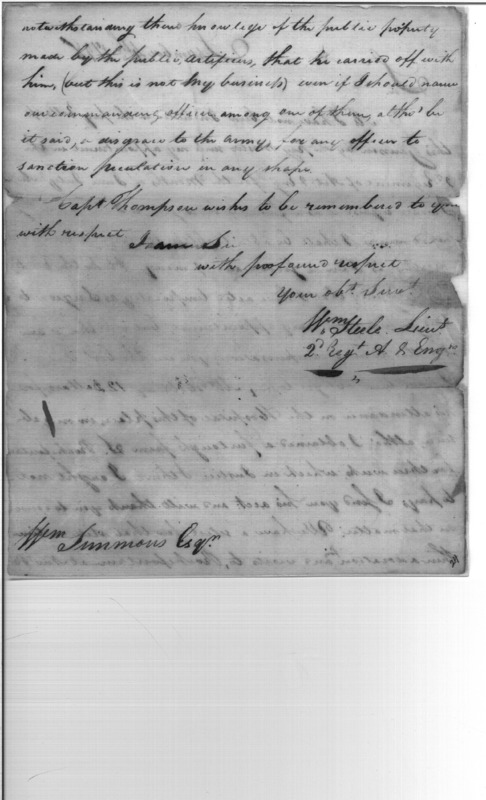 notwithstanding there knowledge of the public property
made by the public, Artificers, that he carried off with
him, (but this is not My business) even if I should name
our commanding officer among one of them, altho' be
it said, a disgrace to the army, for any officer to
sanction peculation in any shape.
Capt Thompson wishes to be remembered to you
with respect I am Sir
with profound respect
Your obt. Servt
Wm Steele Lieut
2d Regt A & Engrs
Wm Simmons Esqr